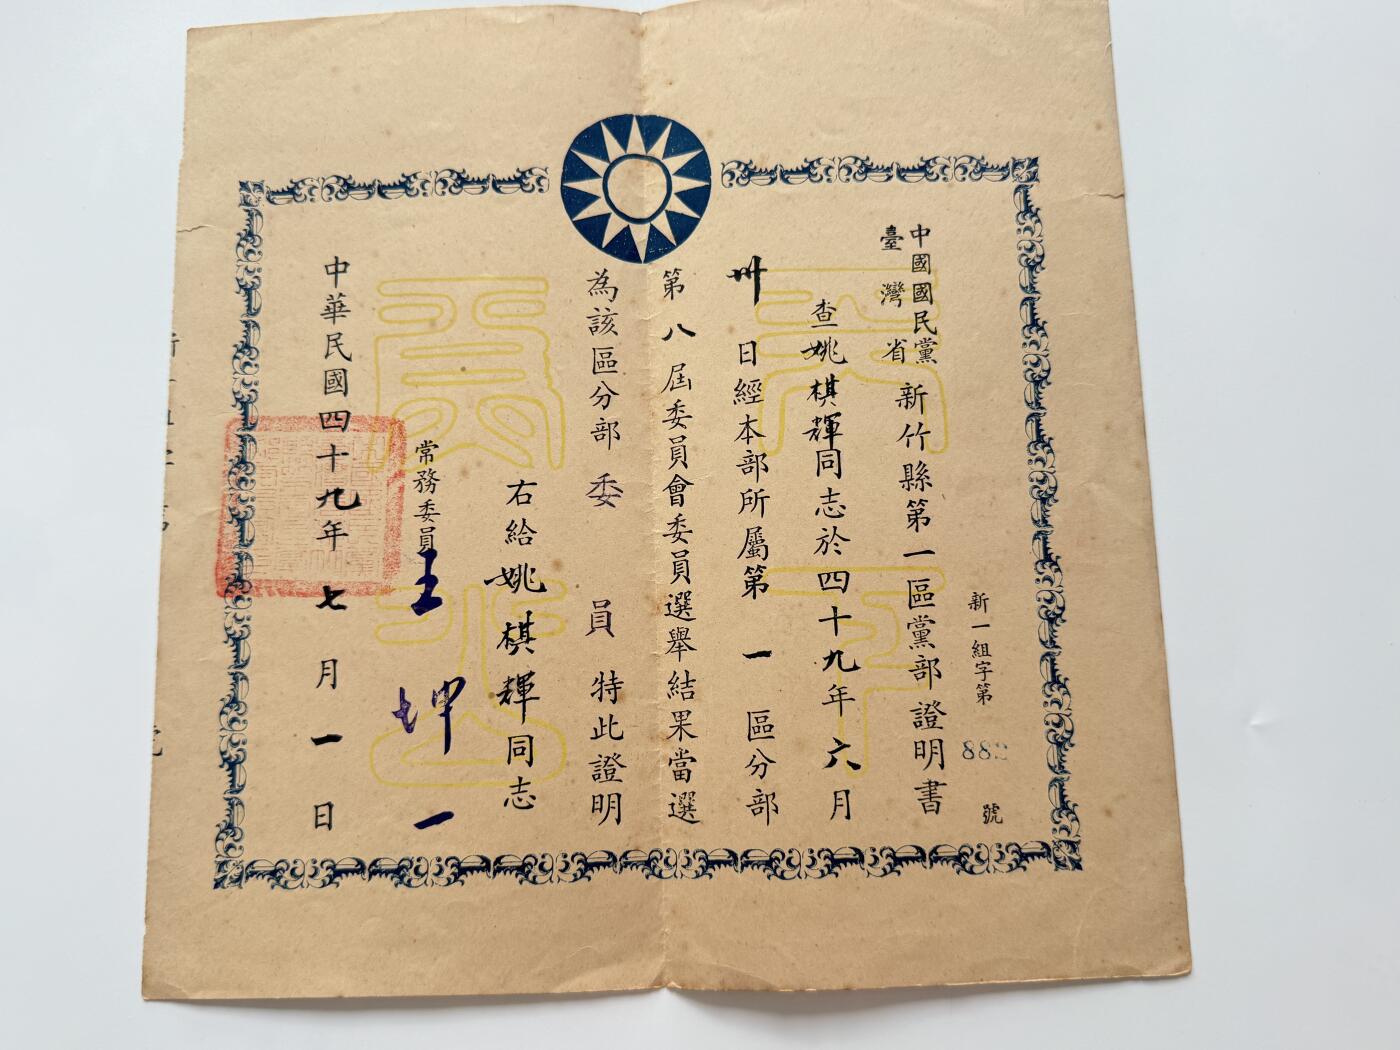 中國國民黨臺灣省新竹縣第一區黨部證明書
新一組字第882號
查姚棋輝同志於四十九年六月
卅日經本部所屬第一區分部
第八屆委員會委員選舉結果當選
為該區分部委員特此證明
右給姚棋輝同志
常務委員王坤一
中華民國四十九年七月一日
天下為公